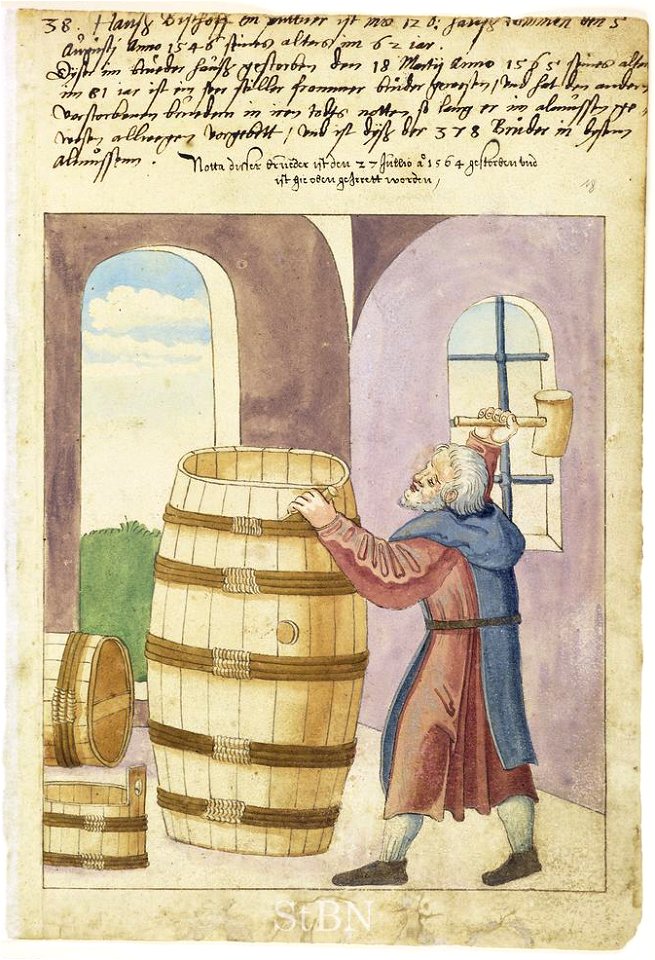 38. Hannß Bischoff ein püttner ist no 120. herein kommen den 5
Augusti Anno 1546 seines alters im 62 iar.
Diser im brüder hauß gestorben den 18 Martij Anno 1565 seines alters
im 81 iar ist ein seer stiller frommer brüder gewesen, und hat den andern
verstorbenen brüdern in iren todts nötten so lang er im almussen ge-
wesen allwegen vorgebett, und ist diß der 378 Brüder in disem
almussenn.
Notta diser brueder ist den 27 Jullio a° 1564 gestorben und
ist hie oben geherett worden,
18
StBN